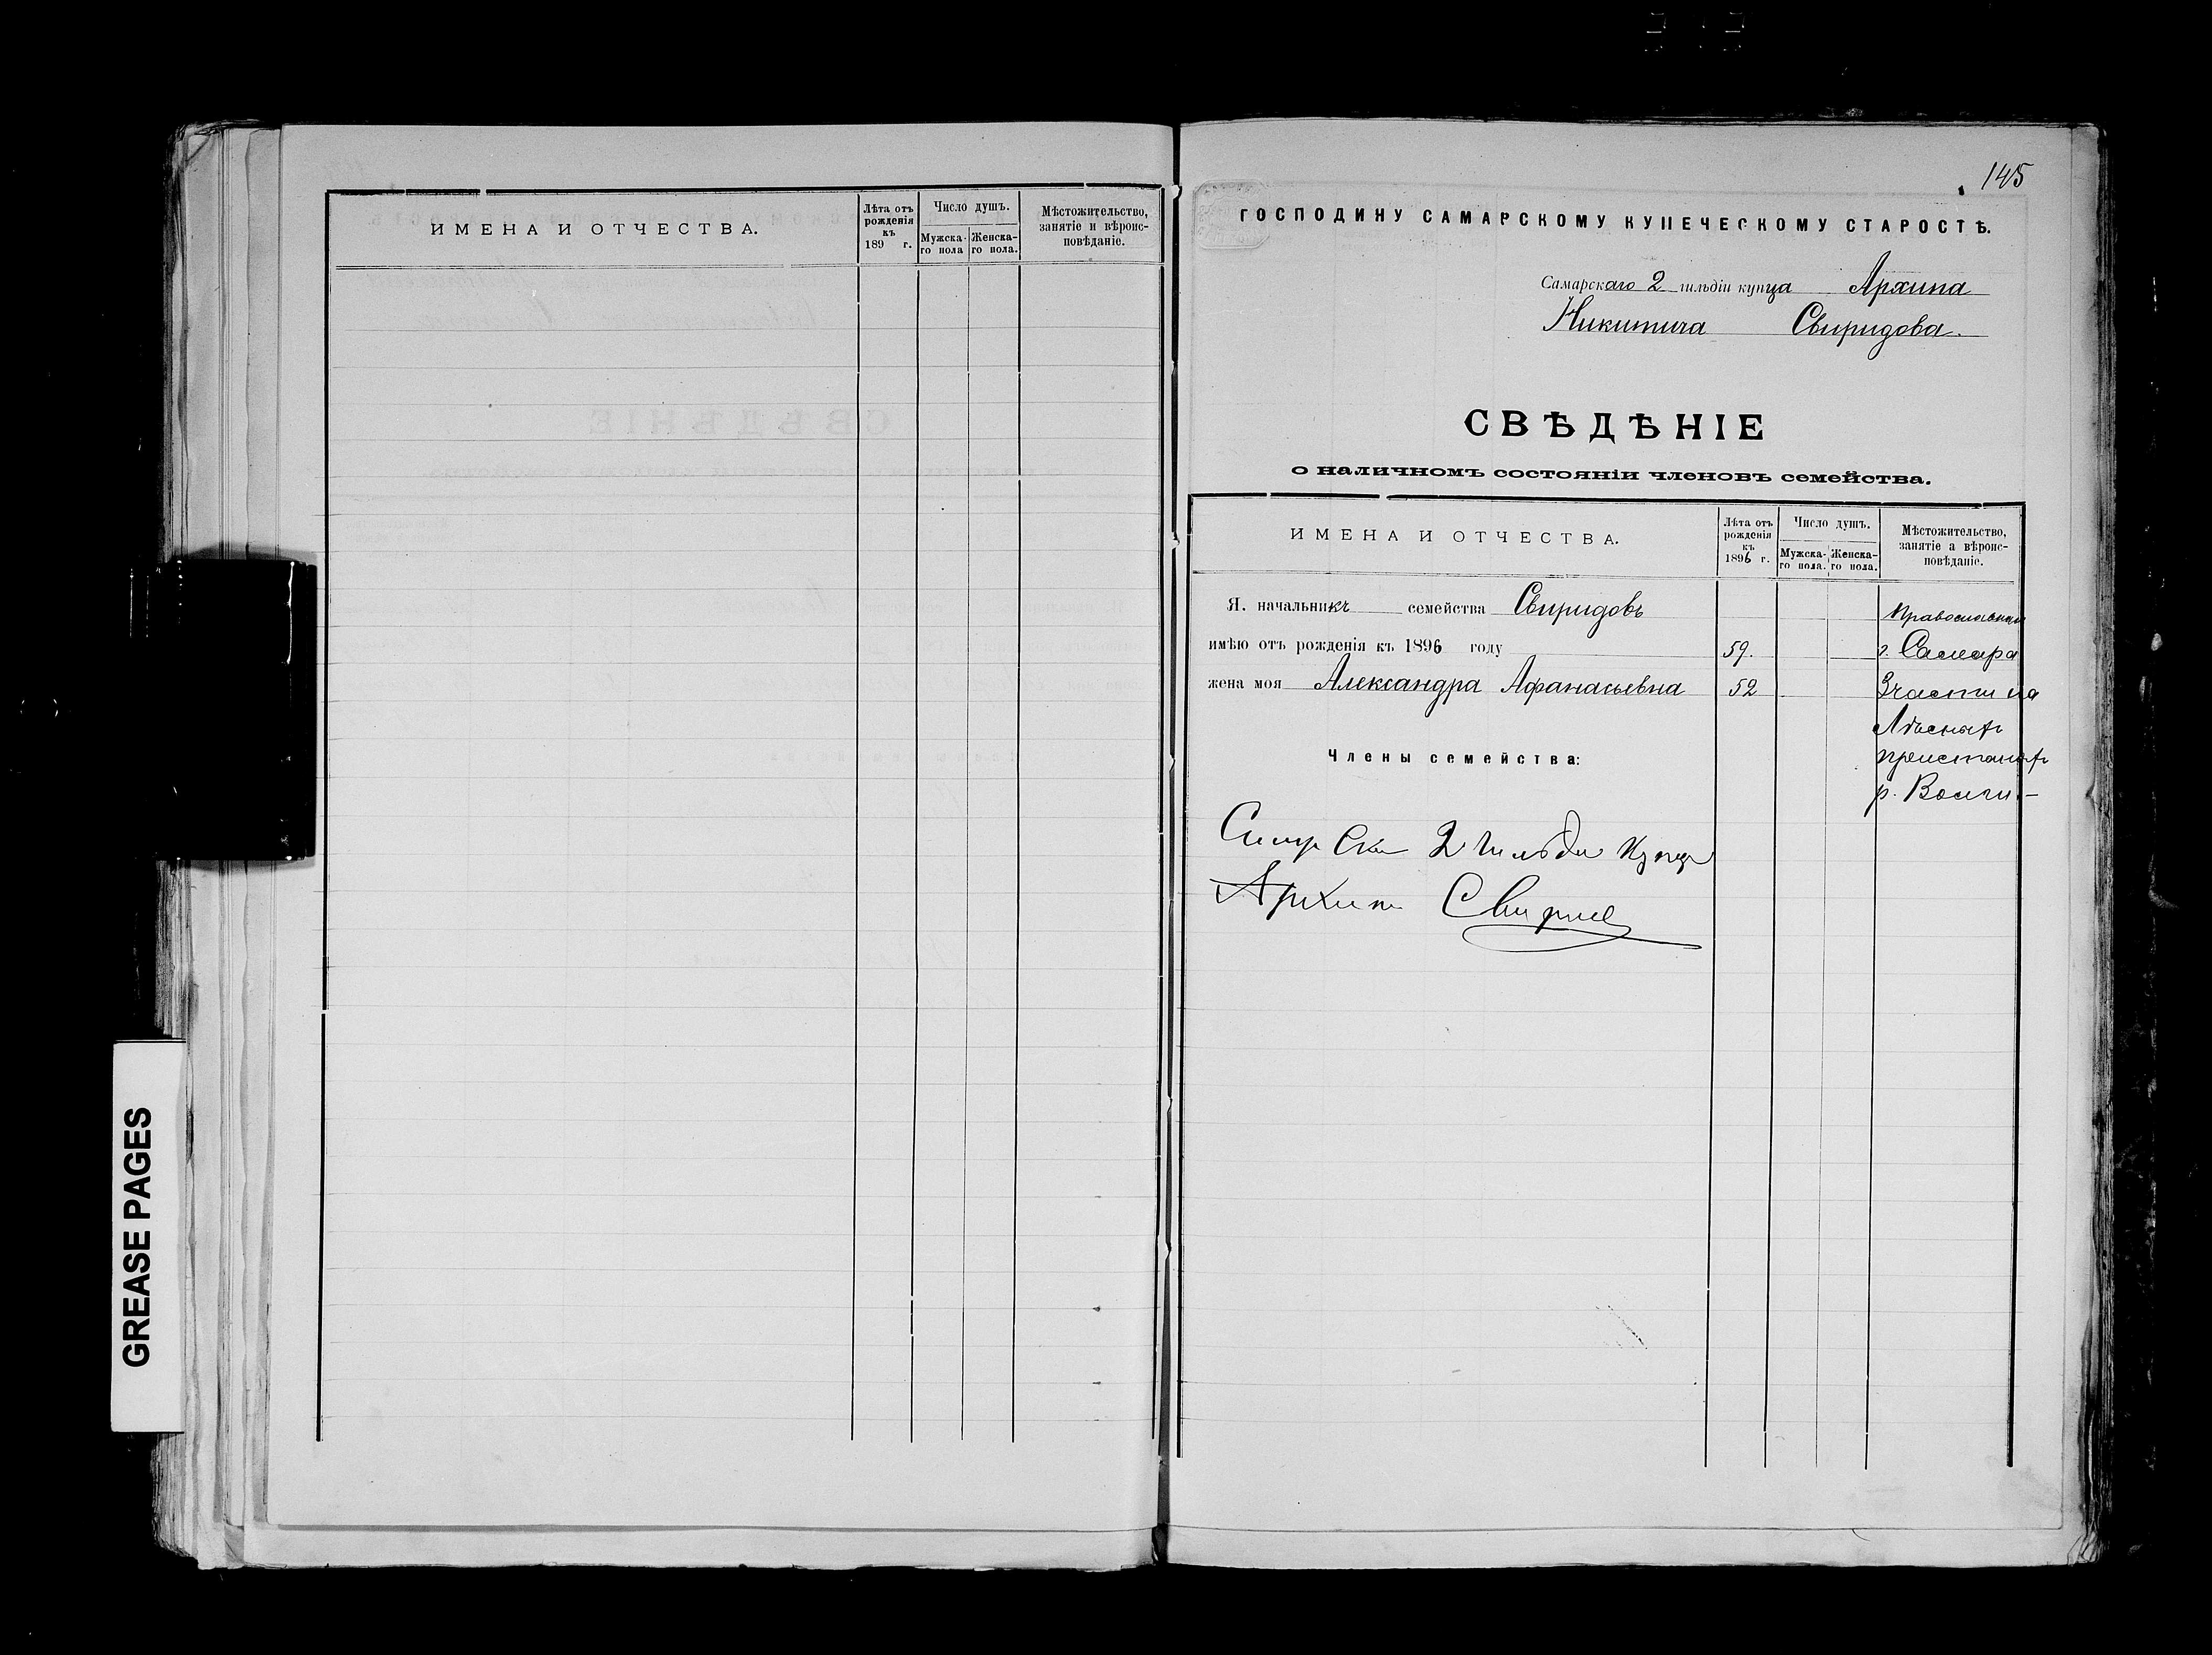 ИМЕНА И ОТЧЕСТВА.
Лѣта отъ рожденія къ 189 г.
Число душъ.
Мужска-го пола
Женска-го пола.
Мѣстожительство, занятіе и вѣроис-повѣданіе.
145
ГОСПОДИНУ САМАРСКОМУ КУПЕЧЕСКОМУ СТАРОСТѢ.
Самарскаго 2 гильдіи купца Архипа
Никитича Свиридова.
СВѢДѢНІЕ
о наличномъ состояніи членовъ семейства.
ИМЕНА И ОТЧЕСТВА.
Лѣта отъ рожденія къ 1896 г.
Число душъ.
Мужска-го пола.
Женска-го пола.
Мѣстожительство, занятіе а вѣроис-повѣданіе.
Я. начальникъ семейства Свиридовъ
имѣю отъ рожденія къ 1896 году 59.
г. Самара
жена моя Александра Афанасьевна 52
3 части на
Лѣсныхъ
пристаняхъ
р. Волги.-
Члены семейства:
2 Гильди
Архип
GREASE PAGES